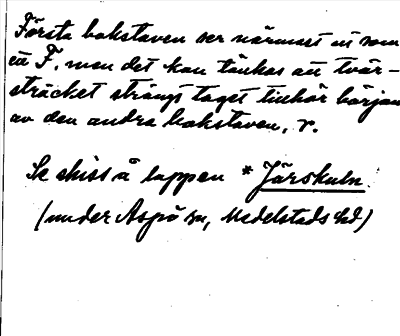 Första bokstaven ser närmast ut som
ett F. men det kan tänkas att tvär-
sträcket strängt taget tillhör början
av den andra bokstaven, r.
Se skiss å lappen * Järskuln
(under Aspö sn, Medelstads hd)